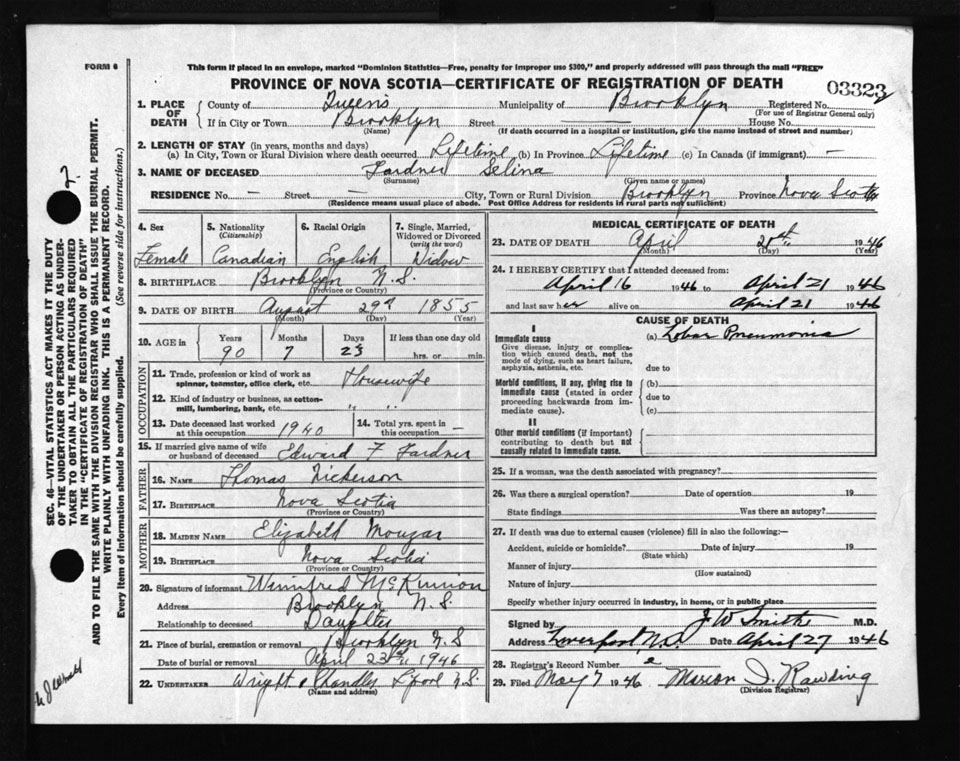 FORM 6
This form if placed in an envelope, marked "Dominion Statistics—Free, penalty for improper use $300," and properly addressed will pass through the mail "FREE"
PROVINCE OF NOVA SCOTIA—CERTIFICATE OF REGISTRATION OF DEATH
03323
1. PLACE OF DEATH County of Queens Municipality of Brooklyn Registered No.
(For use of Registrar General only)
If in City or Town Brooklyn Street — House No.
(Name) (If death occurred in a hospital or institution, give the name instead of street and number)
2. LENGTH OF STAY (in years, months and days)
(a) In City, Town or Rural Division where death occurred Lifetime (b) In Province Lifetime (c) In Canada (if immigrant) —
3. NAME OF DECEASED Gardner Selina
(Surname) (Given name or names)
RESIDENCE No. — Street — City, Town or Rural Division Brooklyn Province Nova Scotia
(Residence means usual place of abode. Post Office Address for residents in rural parts not sufficient)
4. Sex 5. Nationality (Citizenship) 6. Racial Origin 7. Single, Married, Widowed or Divorced (write the word)
Female Canadian English Widow
8. BIRTHPLACE Brooklyn N.S.
(Province or Country)
9. DATE OF BIRTH August 29 1855
(Month) (Day) (Year)
10. AGE in Years Months Days If less than one day old
90 7 23 hrs. or min.
OCCUPATION
11. Trade, profession or kind of work as spinner, teamster, office clerk, etc. Housewife
12. Kind of industry or business, as cotton-mill, lumbering, bank, etc. " "
13. Date deceased last worked at this occupation 1940 14. Total yrs. spent in this occupation —
15. If married give name of wife or husband of deceased Edward F Gardner
FATHER
16. NAME Thomas Nickerson
17. BIRTHPLACE Nova Scotia
(Province or Country)
MOTHER
18. MAIDEN NAME Elizabeth
19. BIRTHPLACE Nova Scotia
(Province or Country)
20. Signature of informant Winnifred McKinnon
Address Brooklyn N.S.
Relationship to deceased Daughter
21. Place of burial, cremation or removal Brooklyn N.S
Date of burial or removal April 23rd 1946
22. UNDERTAKER Wright & Chandler Lpool N.S.
(Name and address)
MEDICAL CERTIFICATE OF DEATH
23. DATE OF DEATH April 21st 1946
(Month) (Day) (Year)
24. I HEREBY CERTIFY that I attended deceased from:
April 16 1946 to April 21 1946
and last saw her alive on April 21 1946
CAUSE OF DEATH
I
Immediate cause (a) Lobar Pneumonia
Give disease, injury or complication which caused death, not the mode of dying, such as heart failure, asphyxia, asthenia, etc.
due to
Morbid conditions, if any, giving rise to immediate cause (stated in order proceeding backwards from immediate cause).
(b)
due to
(c)
II
Other morbid conditions (if important) contributing to death but not causally related to immediate cause.
25. If a woman, was the death associated with pregnancy?
26. Was there a surgical operation? Date of operation 19
State findings Was there an autopsy?
27. If death was due to external causes (violence) fill in also the following:—
Accident, suicide or homicide? Date of injury 19
(State which)
Manner of injury
(How sustained)
Nature of injury
Specify whether injury occurred in industry, in home, or in public place
Signed by J W Smith M.D.
Address Liverpool, N.S. Date April 27 1946
28. Registrar's Record Number 2
29. Filed May 7 1946 Marion I. Rawding
(Division Registrar)
SEC. 46—VITAL STATISTICS ACT MAKES IT THE DUTY
OF THE UNDERTAKER OR PERSON ACTING AS UNDER-
TAKER TO OBTAIN ALL THE PARTICULARS REQUIRED
IN THE "CERTIFICATE OF REGISTRATION OF DEATH"
AND TO FILE THE SAME WITH THE DIVISION REGISTRAR WHO SHALL ISSUE THE BURIAL PERMIT.
WRITE PLAINLY WITH UNFADING INK. THIS IS A PERMANENT RECORD.
Every item of information should be carefully supplied. (See reverse side for instructions.)